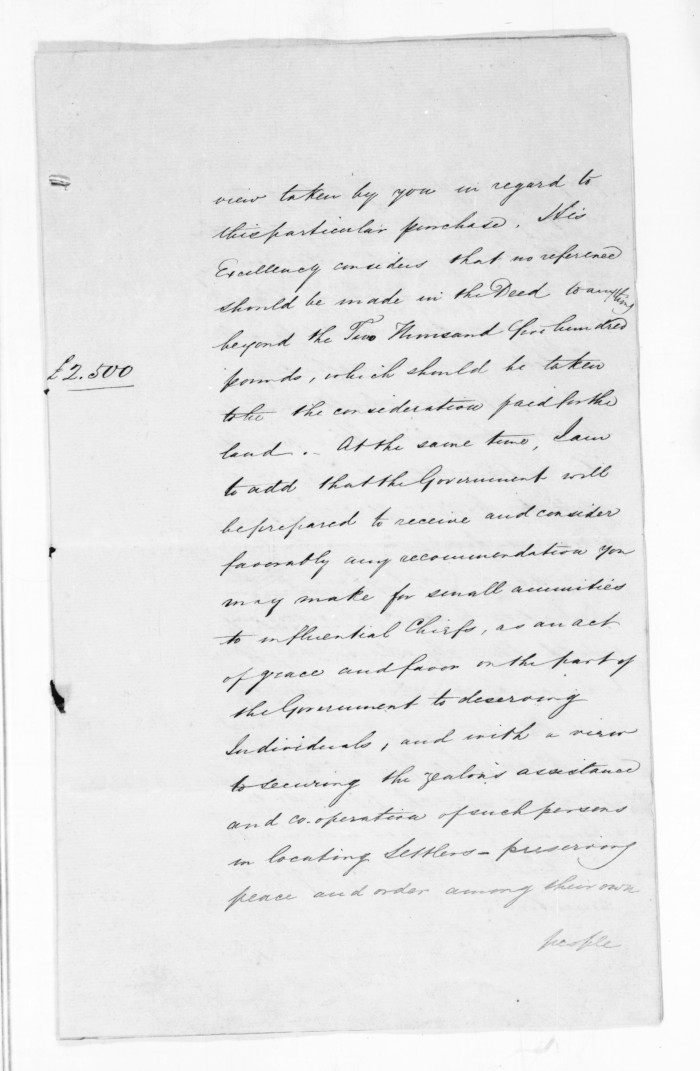 view taken by you in regard to
this particular purchase. His
Excellency considers that no reference
should be made in the Deed to anything
beyond the Two Thousand five hundred
£2.500
pounds, which should be taken
to be the consideration paid for the
land. – At the same time, I am
to add that the Government will
be prepared to receive and consider
favorably any recommendation you
may make for small annuities
to influential Chiefs, as an act
of grace and favor on the part of
the Government to deserving
Individuals, and with a view
to securing the zealous assistance
and co-operation of such persons
in locating Settlers – preserving
peace and order among their own
people